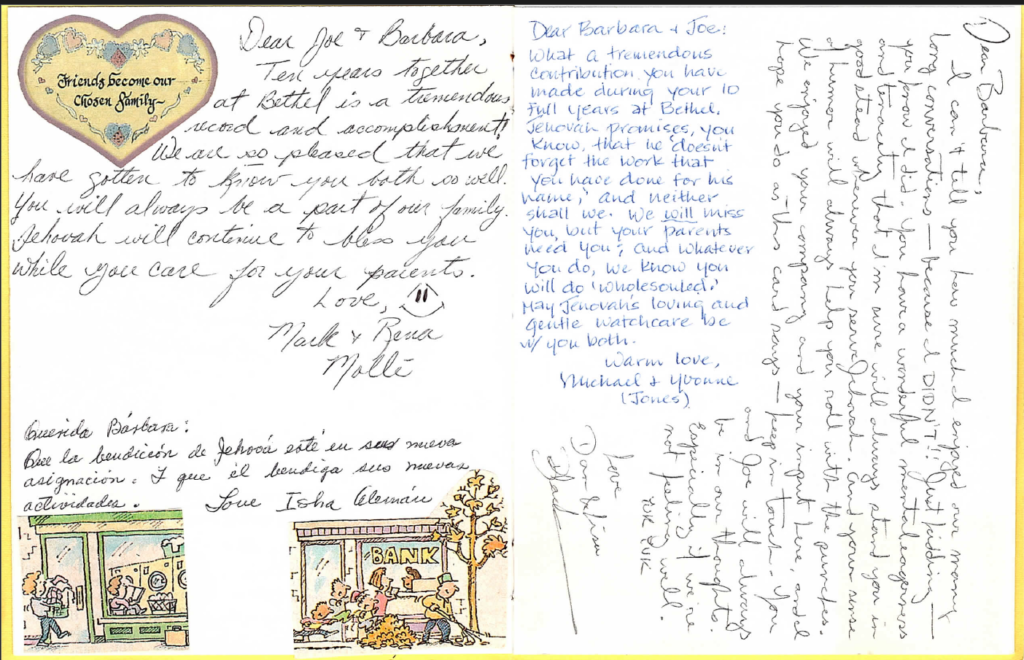 Friends become our
Chosen Family~
Dear Joe & Barbara,
Ten years together
at Bethel is a tremendous
record and accomplishment!
We are so pleased that we
have gotten to know you both so well.
You will always be a part of our family.
Jehovah will continue to bless you
while you care for your parents.
Love,
Mark & Rena
Molle
Querida Bárbara:
Que la bendición de Jehová esté en sus nueva
asignación. Y que él bendiga sus nuevas
actividades. Love Isha Alemán
BANK
Dear Barbara & Joe:
What a tremendous
contribution you have
made during your 10
full years at Bethel.
Jehovah promises, you
know, that he doesn't
forget the work that
you have done for his
name; and neither
shall we. We will miss
you, but your parents
need you; and whatever
you do, we know you
will do 'wholesouled.'
May Jehovah's loving and
gentle watchcare be
w/ you both.
Warm love,
Michael & Yvonne
(Jones)
Dear Barbara,
I can't tell you how much I enjoyed our many
long conversations — because I DIDN'T!! Just kidding —
you know I did. You have a wonderful mental eagerness
and tenacity that I'm sure will always stand you in
good stead wherever you serve Jehovah. And your sense
of humor will always help you roll with the punches.
We enjoyed your company and your input here, and I
hope you do as this card says — keep in touch. You
and Joe will always
be in our thoughts.
Especially if we're
not feeling well.
YUK YUK
Love
Don & Lisa